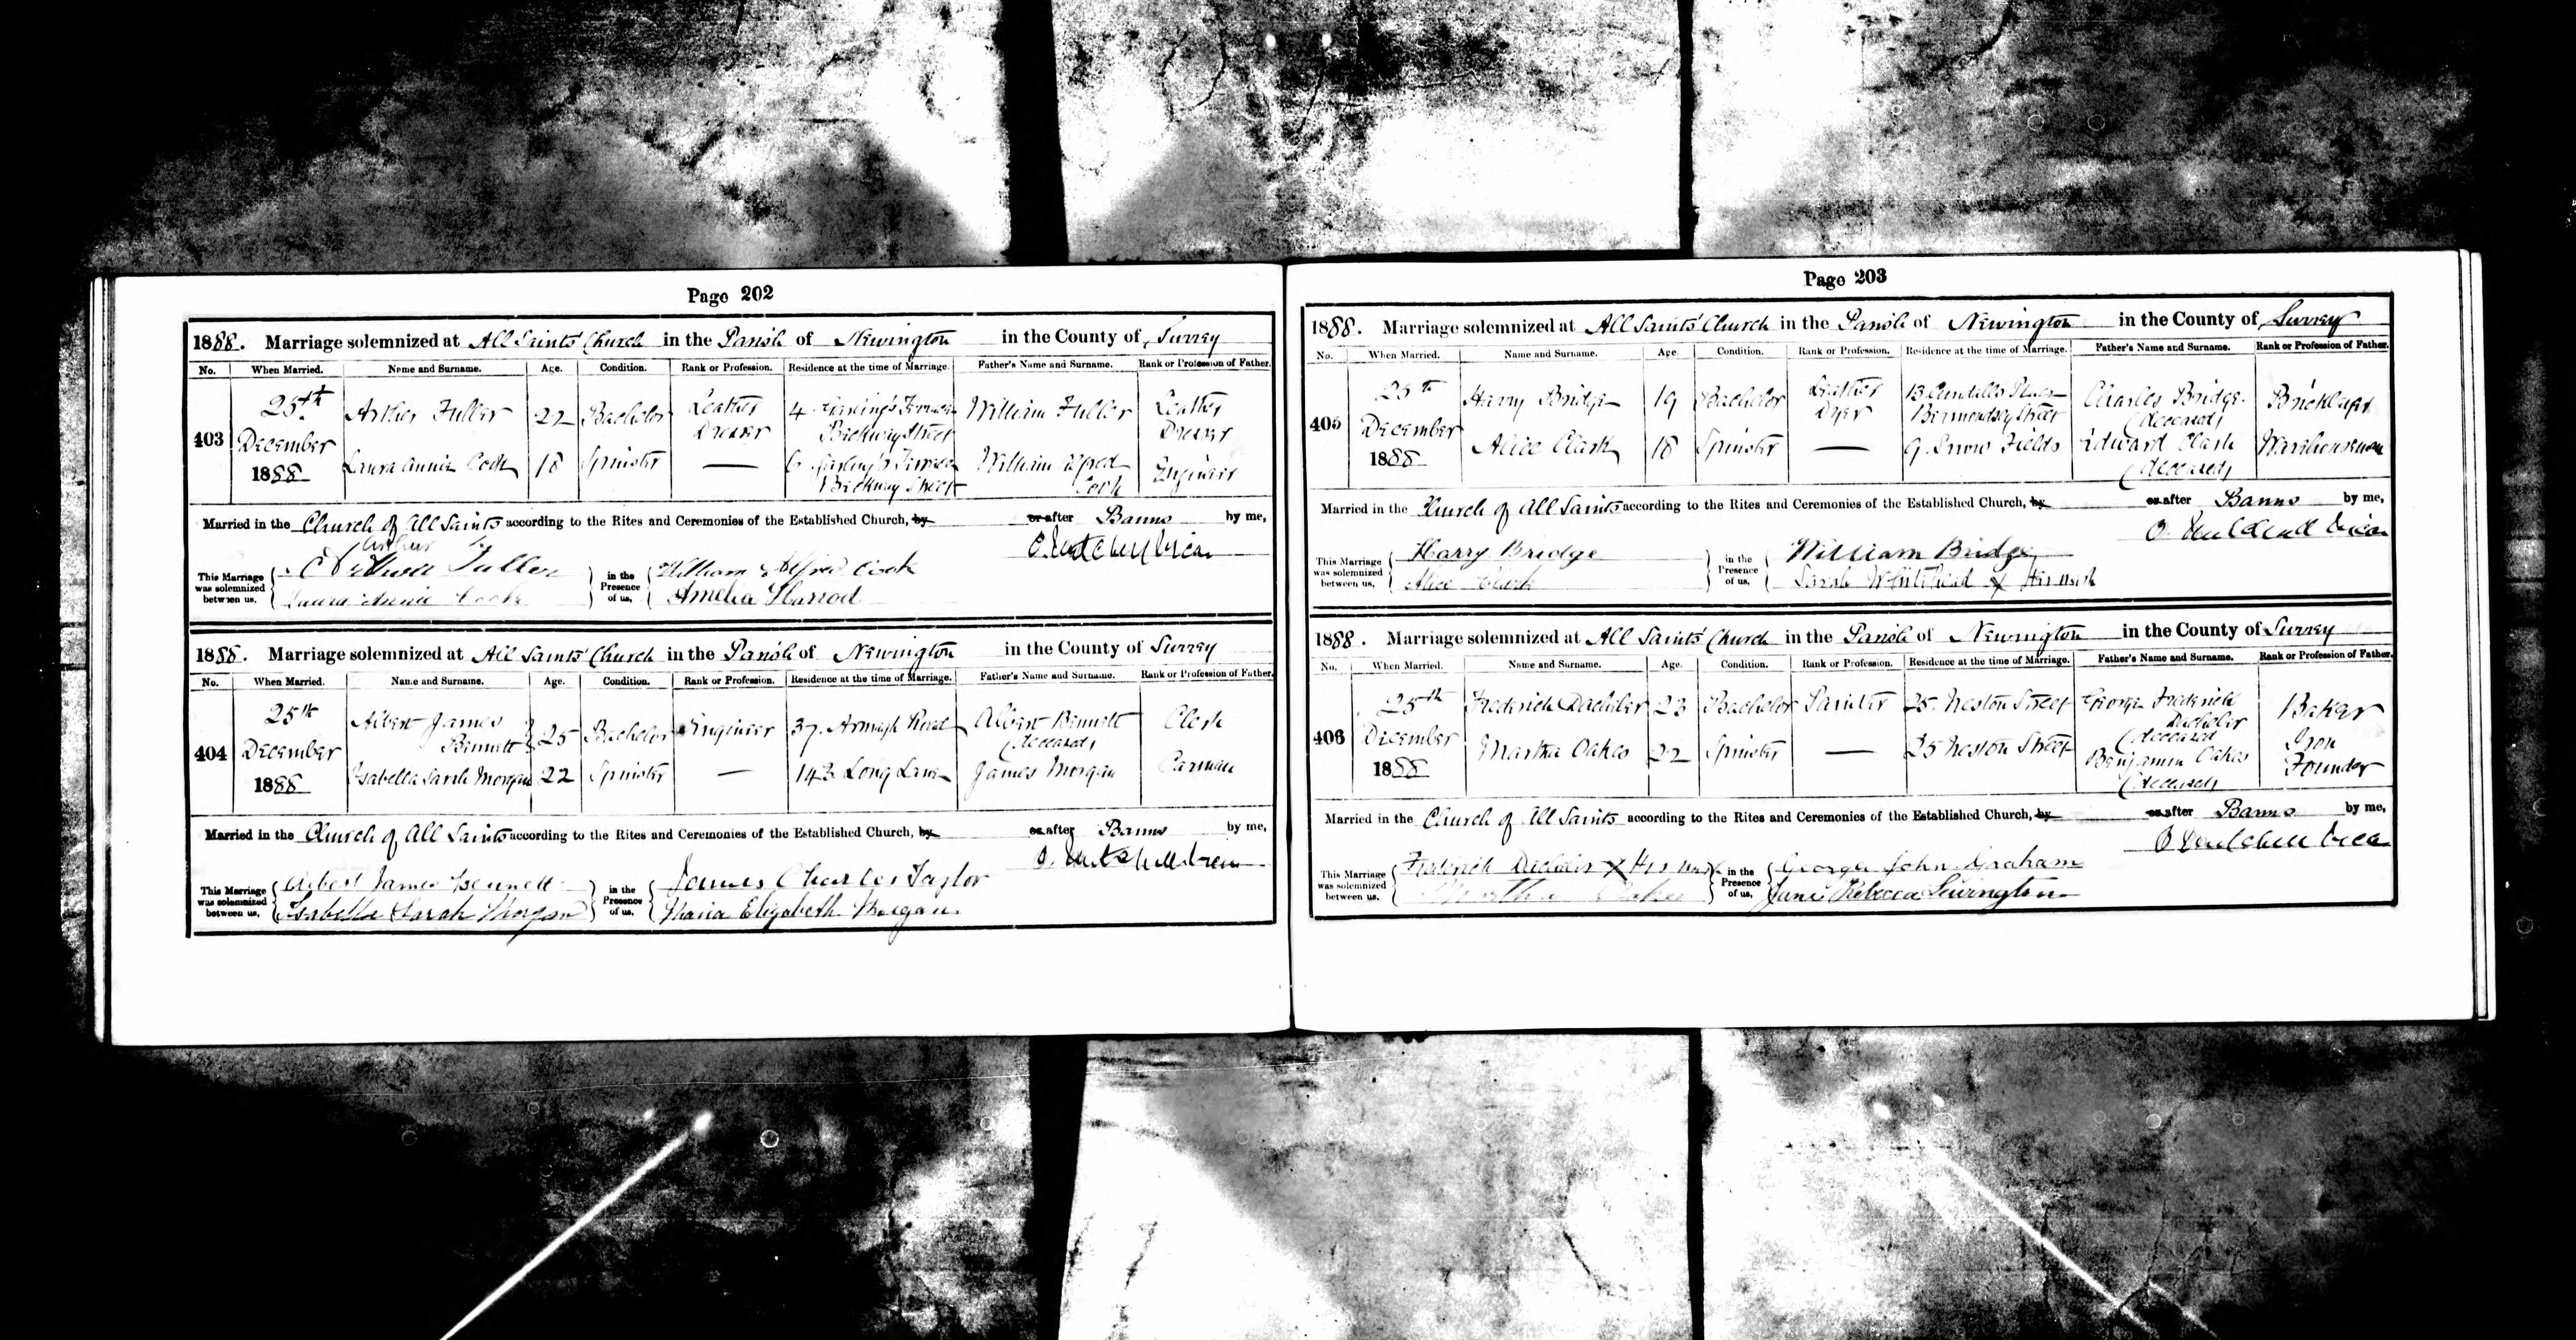 Page 202
1888. Marriage solemnized at All Saints' Church in the Parish of Newington in the County of Surrey
No. When Married. Name and Surname. Age. Condition. Rank or Profession. Residence at the time of Marriage. Father's Name and Surname. Rank or Profession of Father.
403 25th December 1888 Arthur Fuller 22 Bachelor Leather Dresser 4 Terrace Street William Fuller Leather Dresser
Laura Annie Cook 18 Spinster — 6 Terrace Street William Alfred Cook Engineer
Married in the Church of All Saints according to the Rites and Ceremonies of the Established Church, by or after Banns by me,
Vicar
This Marriage was solemnized between us, Arthur Fuller Laura Annie Cook in the Presence of us, William Alfred Cook Amelia Harrod
1888. Marriage solemnized at All Saints' Church in the Parish of Newington in the County of Surrey
No. When Married. Name and Surname. Age. Condition. Rank or Profession. Residence at the time of Marriage. Father's Name and Surname. Rank or Profession of Father.
404 25th December 1888 Albert James Bennett 25 Bachelor Engineer 37. Armagh Road Albert Bennett (deceased) Clerk
Isabella Sarah Morgan 22 Spinster — 142 Long Lane James Morgan Carman
Married in the Church of All Saints according to the Rites and Ceremonies of the Established Church, by or after Banns by me,
Vicar
This Marriage was solemnized between us, Albert James Bennett Isabella Sarah Morgan in the Presence of us, James Charles Taylor Maria Elizabeth Morgan.
Page 203
1888. Marriage solemnized at All Saints' Church in the Parish of Newington in the County of Surrey
No. When Married. Name and Surname. Age. Condition. Rank or Profession. Residence at the time of Marriage. Father's Name and Surname. Rank or Profession of Father.
405 25th December 1888 Harry Bridge 19 Bachelor Leather Dyer 13 Place Bermondsey Street Charles Bridge (deceased) Bricklayer
Alice Clark 18 Spinster — 9. Snow Fields Edward Clark (deceased) Warehouseman
Married in the Church of All Saints according to the Rites and Ceremonies of the Established Church, by or after Banns by me,
Vicar
This Marriage was solemnized between us, Harry Bridge Alice Clark in the Presence of us, William Bridge Sarah Whitehead X Her mark
1888. Marriage solemnized at All Saints' Church in the Parish of Newington in the County of Surrey
No. When Married. Name and Surname. Age. Condition. Rank or Profession. Residence at the time of Marriage. Father's Name and Surname. Rank or Profession of Father.
406 25th December 1888 Frederick 23 Bachelor 25. Street George Frederick (deceased) Baker
Martha Oakes 22 Spinster — 25 Street Benjamin Oakes (deceased) Iron Founder
Married in the Church of All Saints according to the Rites and Ceremonies of the Established Church, by or after Banns by me,
Vicar
This Marriage was solemnized between us, Frederick X His mark Martha Oakes in the Presence of us, George John Graham Jane Rebecca